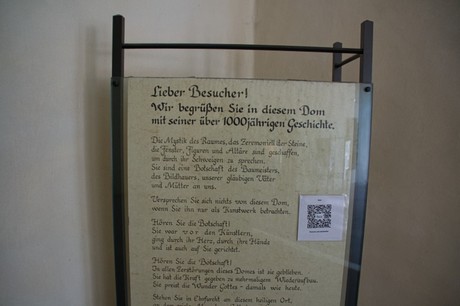 Lieber Besucher!
Wir begrüßen Sie in diesem Dom
mit seiner über 1000jährigen Geschichte.
Die Mystik des Raumes, das Zeremoniell der Steine,
die Fenster, Figuren und Altäre sind geschaffen,
um durch ihr Schweigen zu sprechen.
Sie sind eine Botschaft des Baumeisters,
des Bildhauers, unserer gläubigen Väter
und Mütter an uns.
Versprechen Sie sich nichts von diesem Dom,
wenn Sie ihn nur als Kunstwerk betrachten.
Hören Sie die Botschaft!
Sie war vor den Künstlern,
ging durch ihr Herz, durch ihre Hände
und ist auch auf Sie gerichtet.
Hören Sie die Botschaft!
In allen Zerstörungen dieses Domes ist sie geblieben.
Sie hat die Kraft gegeben zu mehrmaligem Wiederaufbau.
Sie preist die Wunder Gottes - damals wie heute.
Stehen Sie in Ehrfurcht an diesem heiligen Ort,